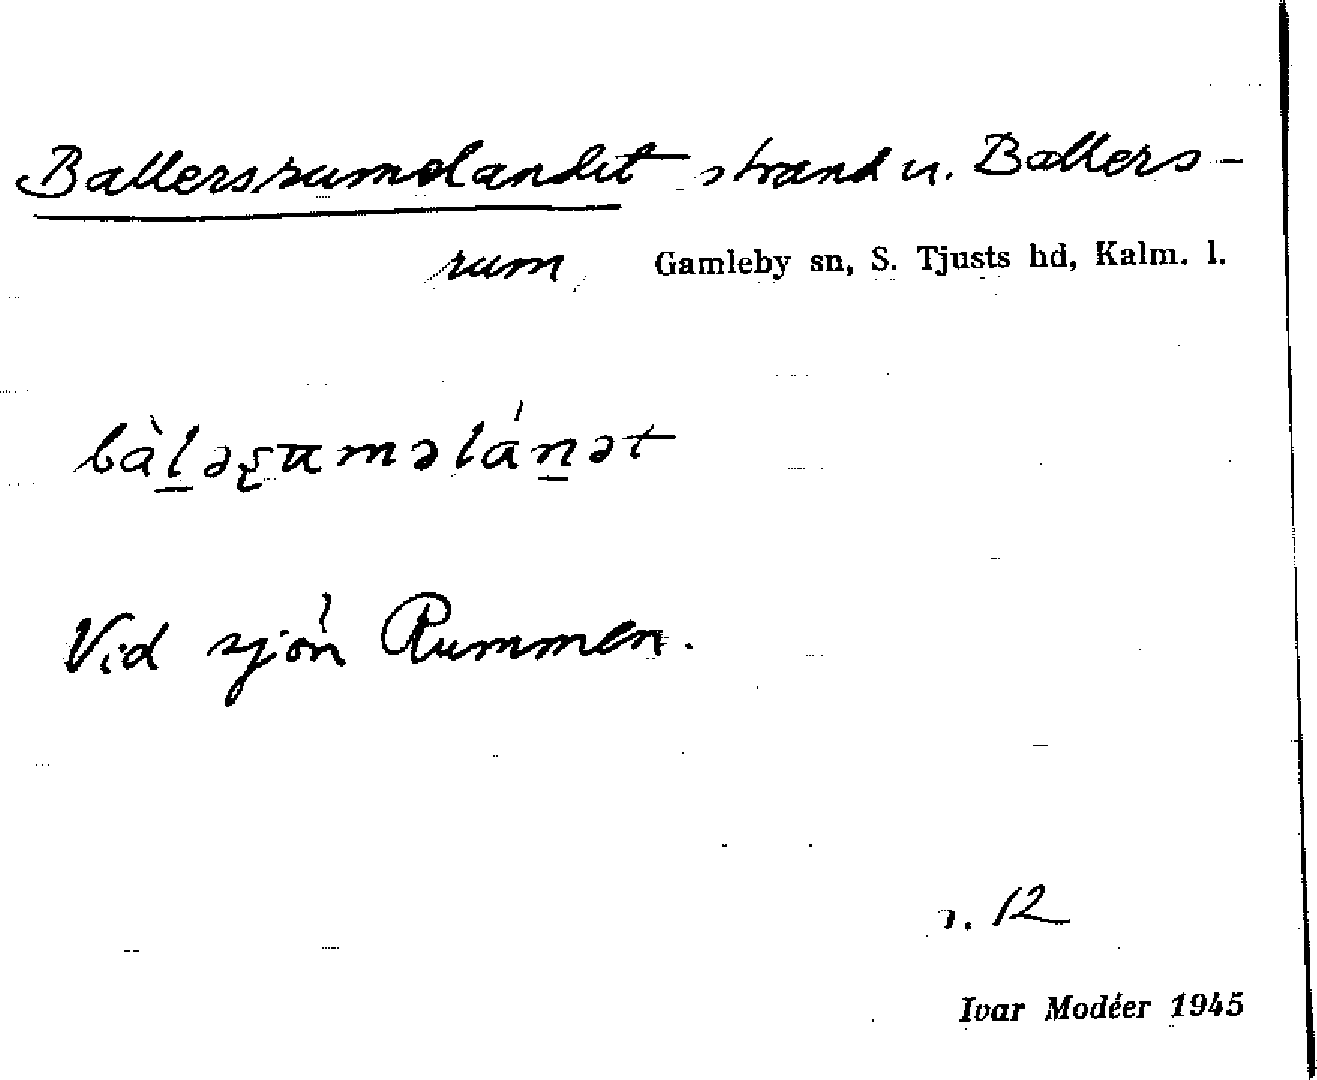 Ballersrumelandet strand u. Ballers-
rum, Gamleby sn, S. Tjusts hd, Kalm. l.
bàl̲əʂumələ́n̲ət
Vid sjön Rummen.
12
Ivar Modéer 1945